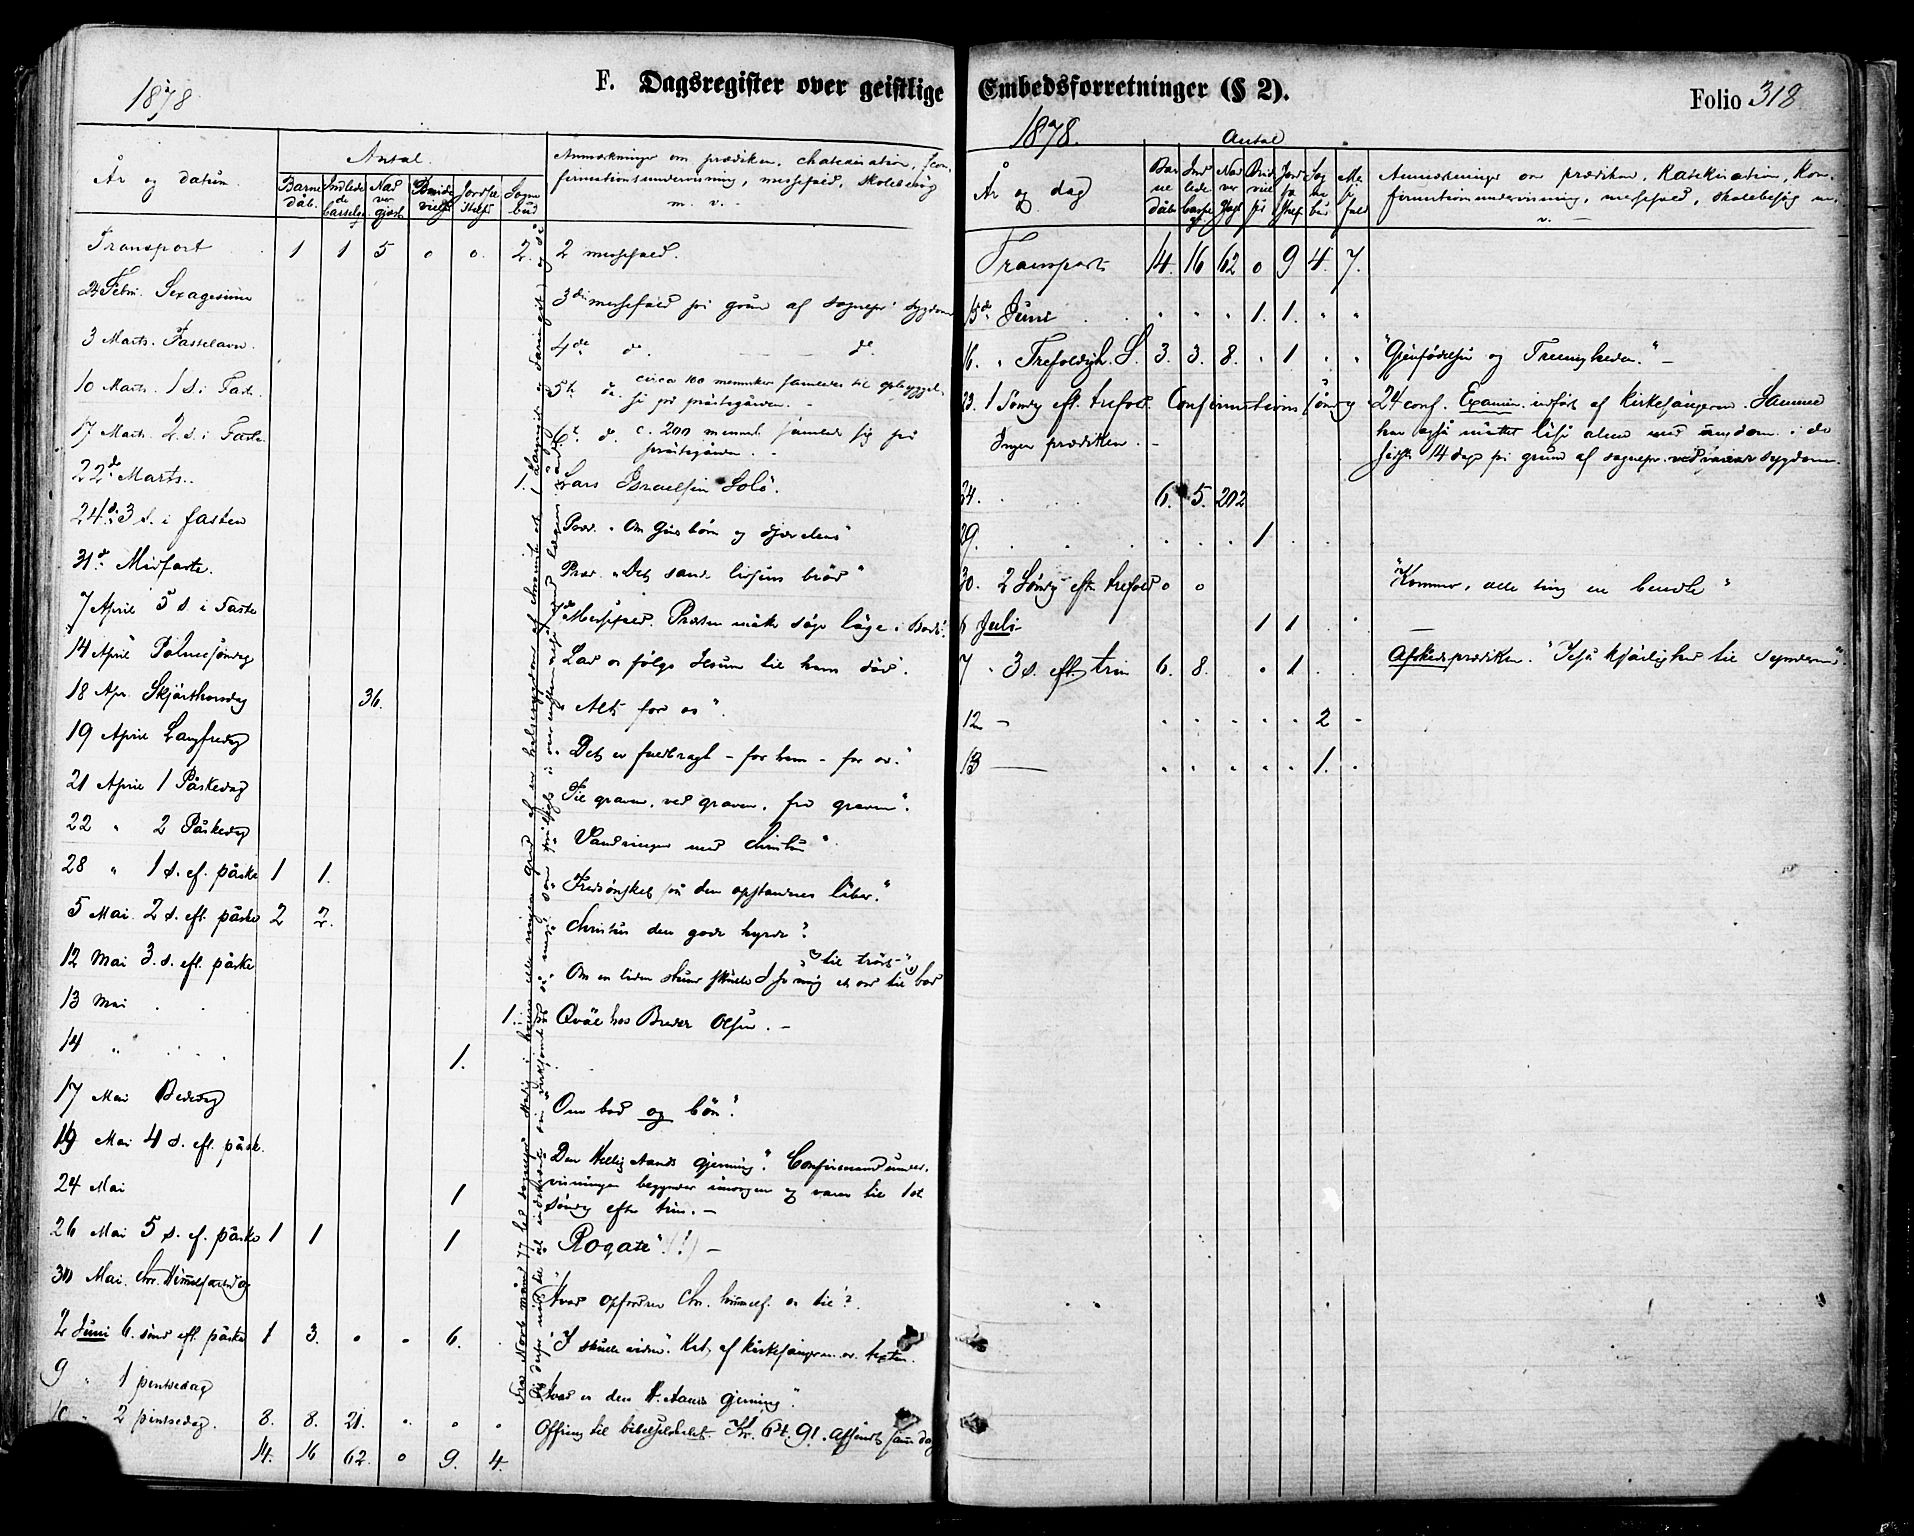 F. Dagsregister over geistlige Embedsforretninger (§ 2).
Folio 318
1878.
År og datum. Antal.
Barne dåb. Indlede de barselq Nad ver gjæst Brude vielse Jordfæ stelse Sogne bud
Anmærkninger om prædiken, chatekisation, Con-
firmationsundervisning, messefald, skolebesøg
m. v. -
Transport 1 1 5 0 0. 2. 2 messefald.
24 Febr. Sexagesima 3die messefald på grund af sognepr. sygdom
3 Marts. Fastelavn. 4de d. — d.
10 Marts. 1 s. i Faste. 5te d. circa 100 mennesker samledes til opbyggel-
se på præstegården. -
17 Marts. 2. s. i Faste. 6te d. c. 200 mennesk. samlede sig på
præstegården. -
22de Marts. 1. Lars Israelsen Solö.
24de 3 s. i fasten Præd. "Om Guds börn og djævelens"
31te Midfaste. Præd. "Det sande livsens bröd"
7 April 5 s. i Faste 7de Messefald. Præsten måtte søge læge i Bodö.
14 April Palmesöndag Lad os følge Jesum til hans död.
18 Apr. Skjärthorsdag 36. "Alt for os".
19 April Langfredag "Det er fuldbragt - for ham - for os."
21 April 1 Påskedag "Til graven, ved graven, fra graven".
22 " 2 Påskedag "Vandringer med Christus"
28 " 1 s. ef. påske 1 1. "Fredsönsket på den opstandnes läber."
5 Mai. 2 s. eft. påske 2 2. "Christus den gode hyrde"
12 Mai 3. s. eft. påske "Om en liden stund skulle I se mig et ord til bod "til tröst"
13 Mai 1. Qväl hos Breder Olsen. -
14 " 1.
17 Mai Bededag "Om bod og bön".
19 Mai 4 s. eft. påske. "Den Hellig Aands gjerning". Confirmandunder-
visningen begynder imorgen og varer til 1st
söndag efter trin. -
24 Mai 1
26 Mai 5 s. ef. påske 1 1 1 "Rogate" (!) -
30 Mai. Chr. Himmelfartsdag "Hvad opfordrer Chr. himmelf. os til"?
2 Juni 6. sönd eft. påske 1 3. 6. "I skulle vidne". Kat. af kirkesangeren ov. texten.
9 " 1 pintsedag "Hvad er den H. Aands gjerning".
10 " 2 pintsedag. 8. 8. 21. Offring til bibelselskabet. Kr. 64.91. Afsendt samme dag
14. 16 62. 0 9. 4.
1878.
År og dag Antal
Bar ne dåb Ind lede barsel Nad ver gjæst Brud viel se Jord fæ stelse Sog ne bud Messe fald
Anmærkninger om prædiken, Katekisation, Kon-
firmationsundervisning, messefald, skolebesøg m.
v. —
Transport 14. 16 62 0 9 4. 7.
15de Juni 1. 1.
16. " Trefoldigh. S. 3. 3. 8. 1 "Gjenfödelsen og Treenigheden." -
23. 1 Söndg eft. trefold. Confirmations söndag. 24 conf. Examin. indført af kirkesangeren. Samme
Ingen prædiken. - har også måttet läse alene med ungdom. i de
sidste 14 dage på grund af sognepr. vedvarar sygdom.
24. 6. 5. 202
29. 1
30. 2 Söndg eft. trefold 0 0 "Kommer, alle ting er beredte"
6 Juli 1 1
7 " 3 s. eft. trin 6. 8. 1 Afskedsprædiken. "Jesu kjärlighed til synderen".
12 - 2
13 — 1.